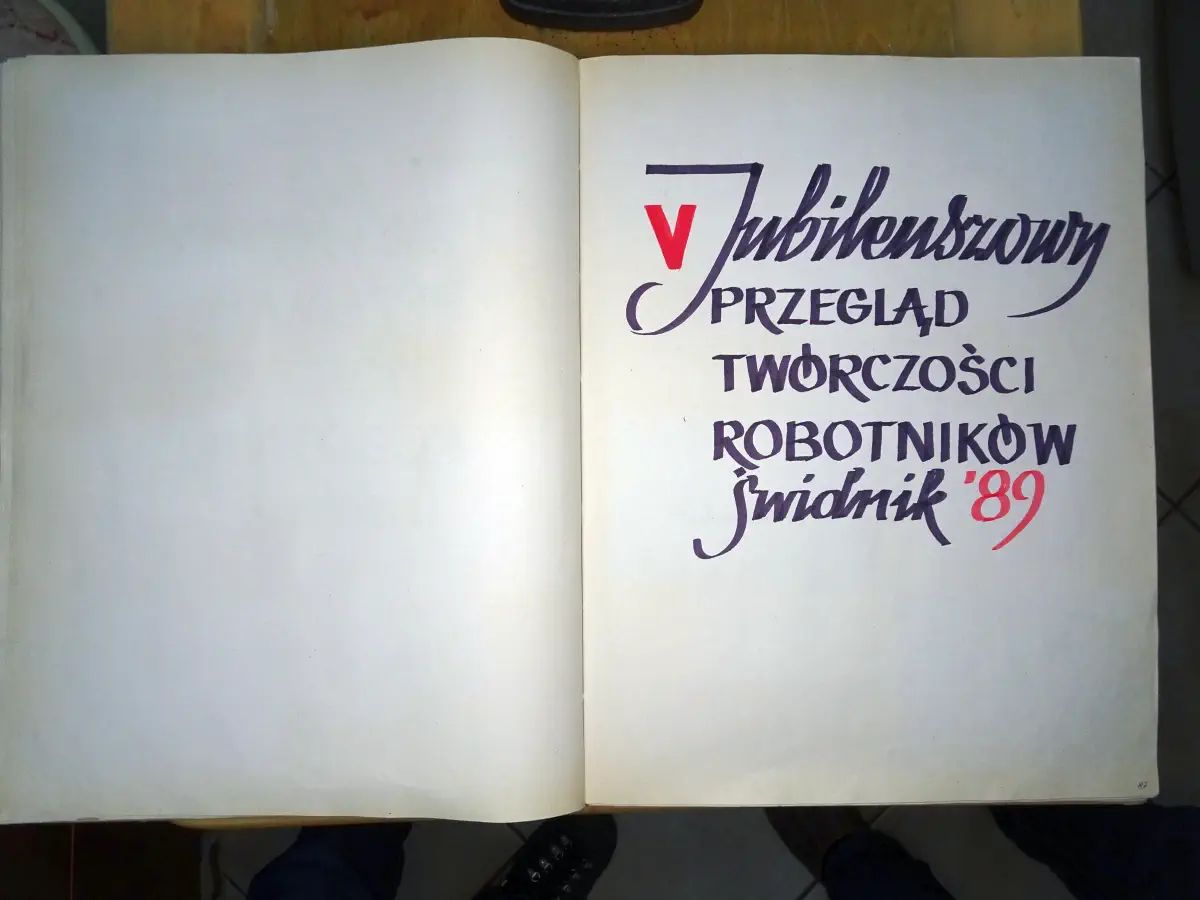 V Jubileuszowy
PRZEGLĄD
TWÓRCZOŚCI
ROBOTNIKÓW
Świdnik '89